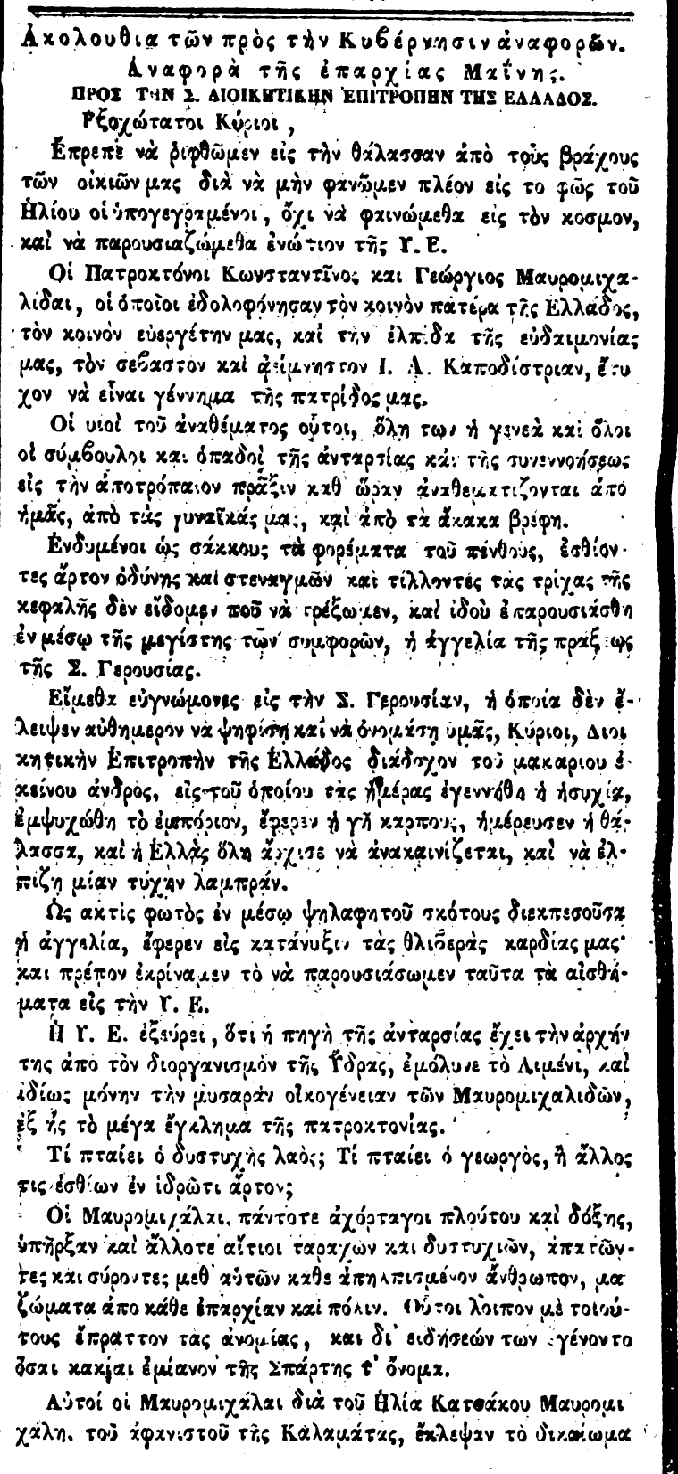 Ακολουθια τῶν πρὸς τὴν Κυβέρνησιν ἀναφορῶν.
Αναφορὰ τῆς ἐπαρχίας Μαΐνης.
ΠΡΟΣ ΤΗΝ Σ. ΔΙΟΙΚΗΤΙΚΗΝ ἘΠΙΤΡΟΠΗΝ ΤΗΣ ΕΛΛΑΔΟΣ.
Ἐξοχώτατοι Κύριοι,
Ἔπρεπε νὰ ῥιφθῶμεν εἰς τὴν θάλασσαν ἀπὸ τοὺς βράχους
τῶν οἰκιῶν μας διὰ νὰ μὴν φανῶμεν πλέον εἰς το φῶς τοῦ
Ἡλίου οἱ ὑπογεγραμένοι, ὄχι νὰ φαινώμεθα εἰς τὸν κοσμον,
καὶ νὰ παρουσιαζώμεθα ἐνώπιον τῆς Υ. Ε.
Οἱ Πατροκτόνοι Κωνσταντῖνος και Γεώργιος Μαυρομιχα-
λίδαι, οἱ ὁποῖοι ἐδολοφόνησαν τὸν κοινὸν πατέρα τῆς Ἑλλάδος,
τὸν κοινὸν εὐεργέτην μας, καὶ την ἐλπίδα τῆς εὐδαιμονίας
μας, τὸν σεβαστον καὶ ἀείμνηστον Ι. Α. Καποδίστριαν, ἔτυ
χον νὰ εἶναι γέννημα τῆς πατρίδος μας.
Οἱ υιοὶ τοῦ ἀναθέματος οὗτοι, ὅλη των ἡ γενεὰ καὶ ὅλοι
οἱ σύμβουλοι και ὀπαδοὶ τῆς ἀνταρσίας καὶ τῆς συνεννοήσεως
εἰς τὴν ἀποτρόπαιον πρᾶξιν καθ ὥραν ἀναθεματιζονται ἀπὸ
ἡμᾶς, ἀπὸ τὰς γυναῖκάς μας, καὶ ἀπὸ τὰ ἄκακα βρέφη.
Ἐνδυμένοι ὡς σάκκους τὰ φορέματα τοῦ πένθους, ἐσθίον-
τες ἄρτον ὀδύνης καὶ στεναγμῶν καὶ τίλλοντές τας τρίχας τῆς
κεφαλῆς δὲν εἴδομεν ποῦ νὰ τρέξωμεν, καὶ ἰδοὺ ἐπαρουσιάσθη
ἐν μέσῳ τῆς μεγίστης τῶν συμφορῶν, ἡ ἀγγελία τῆς πράξεως
τῆς Σ. Γερουσίας.
Εἴμεθα εὐγνώμονες εἰς τὴν Σ. Γερουσίαν, ἡ ὁποία δὲν ἔ-
λειψεν αὐθημερον νὰ ψηφίσῃ καὶ νὰ ὀνομάσῃ υμᾶς, Κύριοι, Διοι
κητικὴν Ἐπιτροπὴν τῆς Ἑλλάδος διάδοχον τοῦ μακαριου ἐ-
κείνου ἀνδρὸς, εἰς τοῦ ὁποίου τας ἡμέρας ἐγεννήθη ἡ ἡσυχία,
ἐμψυχώθη τὸ ἐμπόριον, ἔφερεν ἡ γῆ καρποὺς, ἡμέρευσεν ἡ θά-
λασσα, καὶ ἡ Ἑλλὰς ὅλη ἄρχισε νὰ ἀνακαινίζεται, καὶ νὰ ἐλ-
πίζῃ μίαν τύχην λαμπράν.
Ὡς ακτὶς φωτὸς ἐν μέσῳ ψηλαφητοῦ σκότους διεκπεσοῦσα
ἡ ἀγγελία, ἔφερεν εἰς κατάνυξιν τὰς θλιβερὰς καρδίας μας·
και πρέπον ἐκρίναμεν τὸ νὰ παρουσιάσωμεν ταῦτα τὰ αἰσθή-
ματα εἰς τὴν Υ. Ε.
Ἡ Υ. Ε. ἐξεύρει, ὅτι ἡ πηγὴ τῆς ἀνταρσίας ἔχει τὴν ἀρχήν
της ἀπο τὸν διοργανισμὸν τῆς Ὕδρας, ἐμόλυνε τὸ Λιμένι, καὶ
ἰδίως μόνην τὴν μυσαρὰν οἰκογένειαν τῶν Μαυρομιχαλιδῶν,
ἐξ ἧς τὸ μέγα ἔγκλημα τῆς πατροκτονίας.
Τί πταίει ὁ δυστυχὴς λαὸς; Τί πταίει ὁ γεωργὸς, ἢ ἄλλος
τις ἐσθίων ἐν ἱδρῶτι ἄρτον;
Οἱ Μαυρομιχάλαι, πάντοτε ἀχόρταγοι πλούτου καὶ δόξης,
ὑπῆρξαν καὶ ἄλλοτε αἴτιοι ταραχῶν και δυστυχιῶν, ἀπατῶν-
τες και σύροντες μεθ αὐτῶν καθε ἀπηλπισμένον ἄνθρωπον, μα
ζώματα ἀπο κάθε ἐπαρχίαν καὶ πόλιν. Οὗτοι λοιπον μὲ τοιού-
τους ἔπραττον τὰς ἀνομίας, και δι' ειδήσεών των ἐγένοντο
ὅσαι κακίαι ἐμίανον τῆς Σπάρτης τ' ὄνομα.
Αὐτοί οἱ Μαυρομιχάλαι διὰ τοῦ Ἡλία Κατσάκου Μαυρομι
χάλη, τοῦ ἀφανιστοῦ τῆς Καλαμάτας, ἔκλεψαν τὸ δικαίωμα